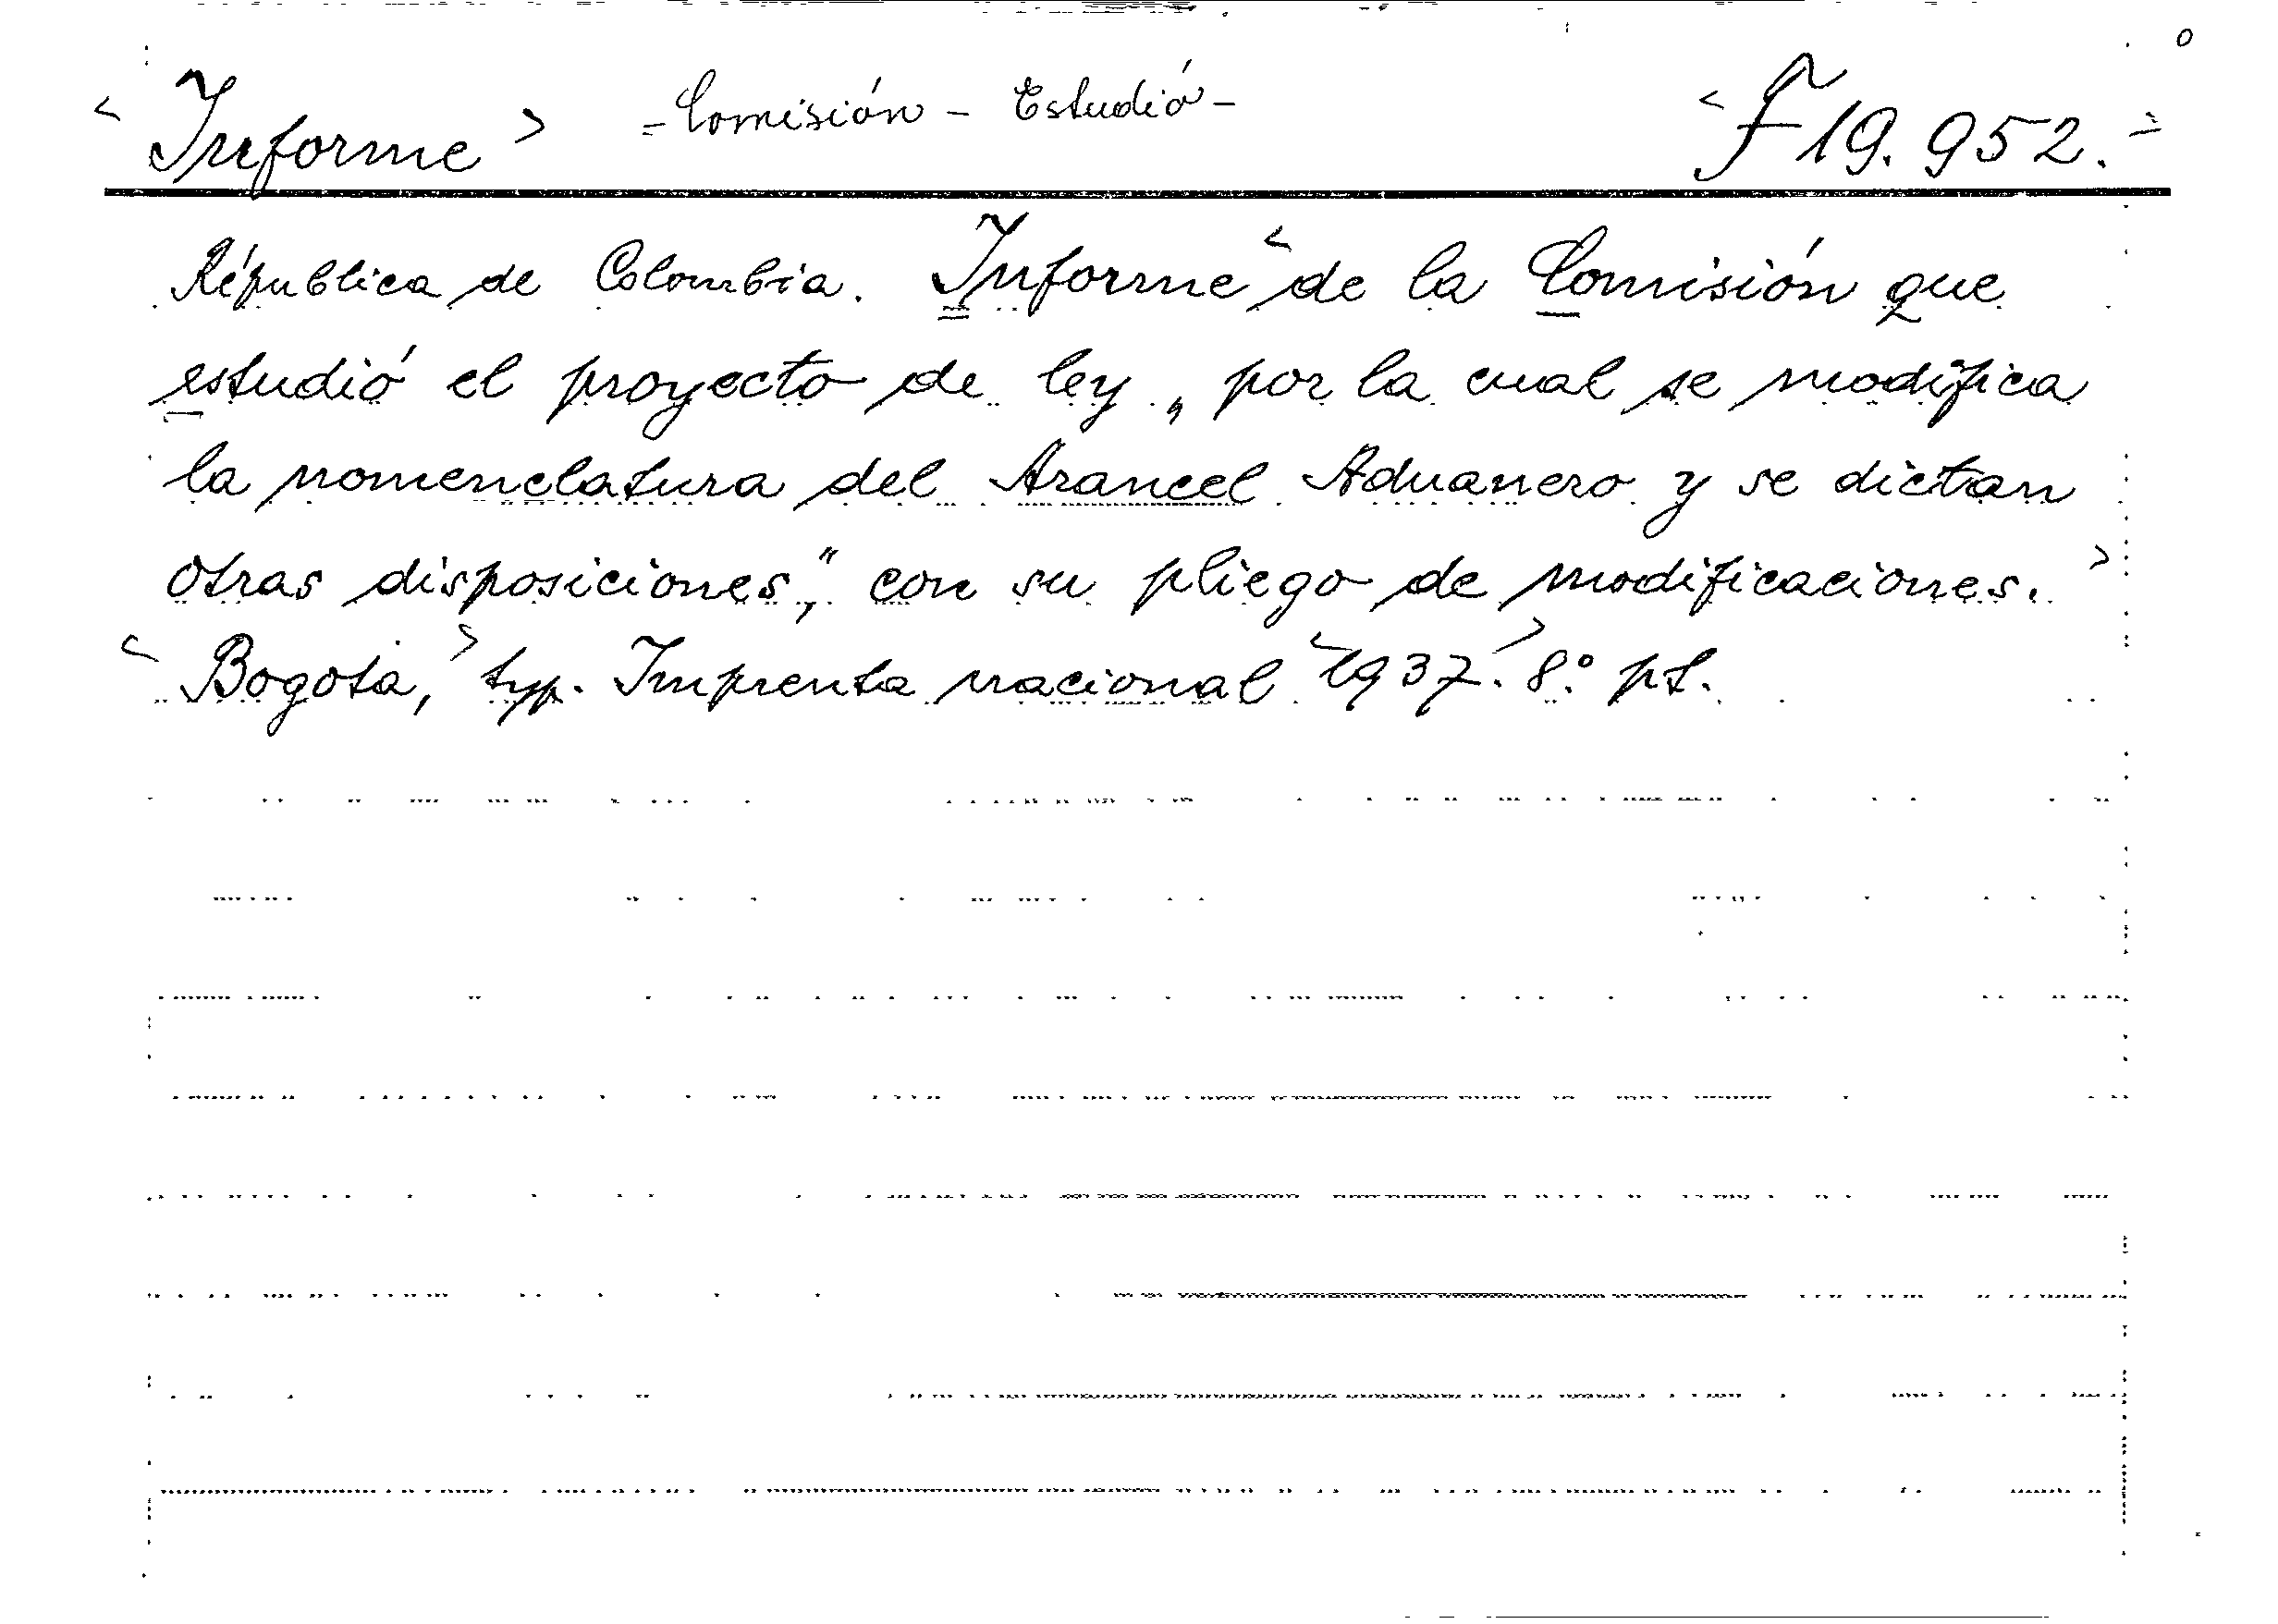 < Informe > = Comisión - Estudió - < F 19.952. =
Républica de Colombia. Informe < de la Comisión que
estudió el proyecto de ley „ por la cual se modifica
la nomenclatura del Arancel Aduanero y se dictan
otras disposiciones,“ con su pliego de modificaciones. >
< Bogota, > typ. Imprenta nacional < 1937. > 8.° pt.